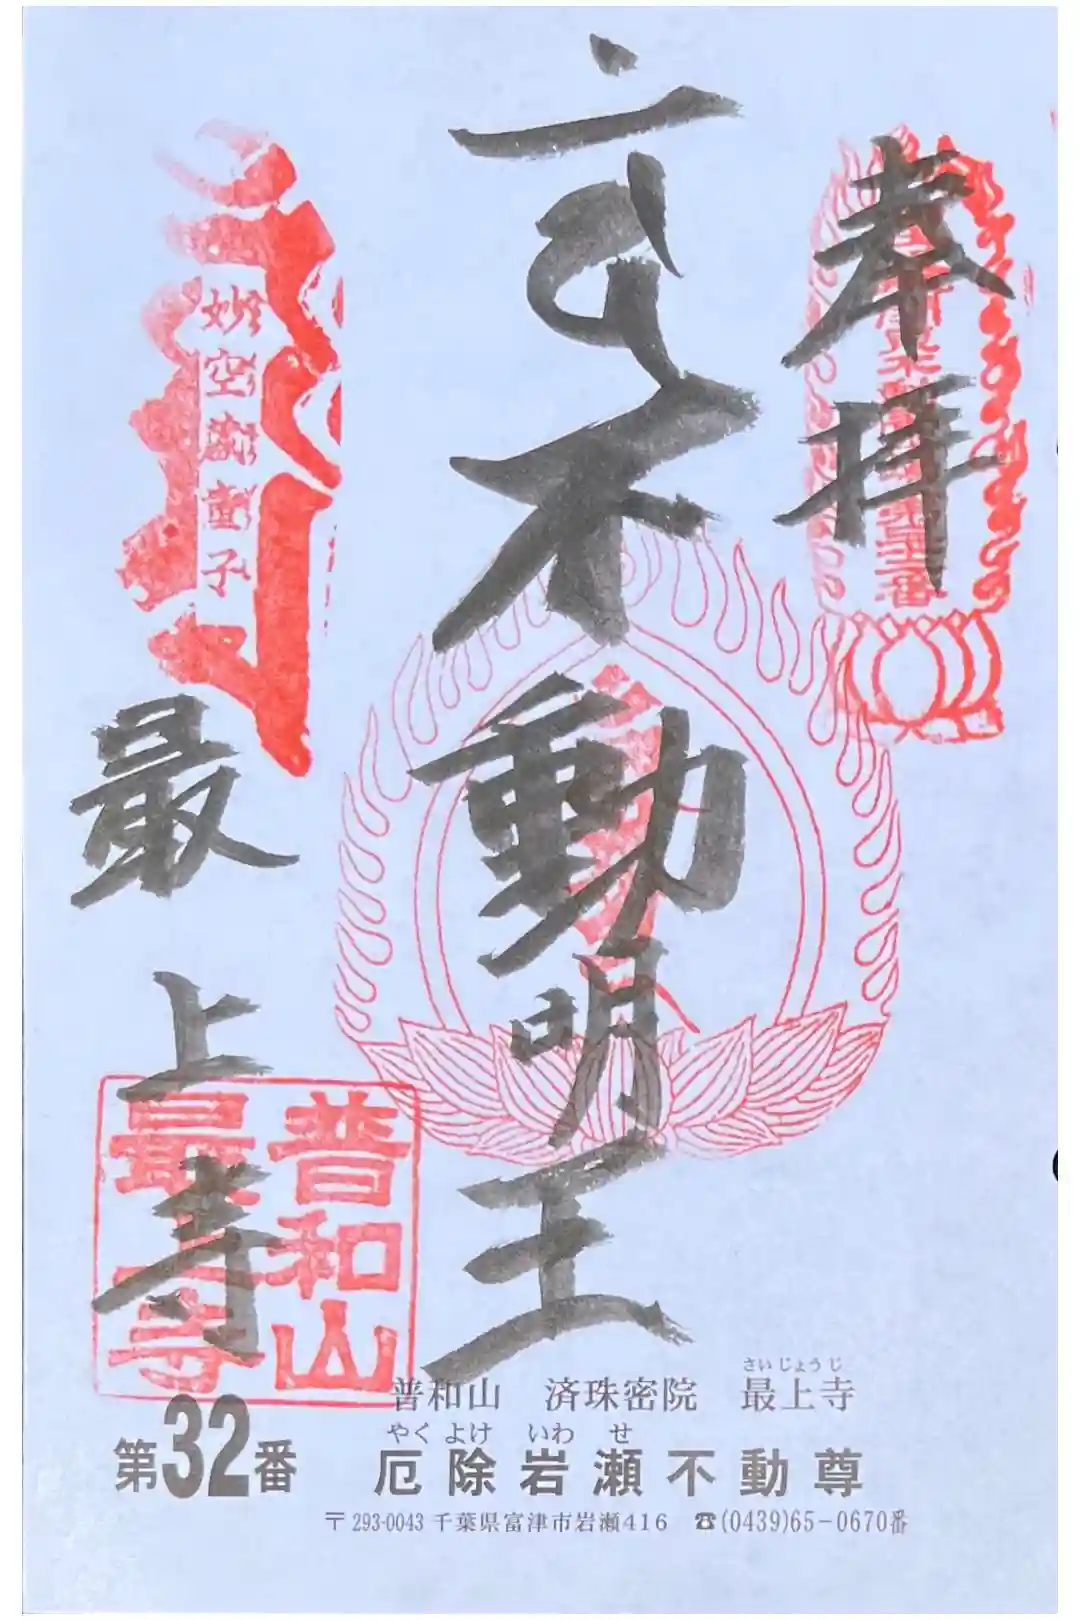 奉拝
不動明王
最上寺
妙空
童子
普和山
最上寺
普和山 済珠密院 最上寺
さいじょうじ
第32番
やくよけ いわせ
厄除岩瀬不動尊
〒293-0043 千葉県富津市岩瀬416 ☎(0439)65-0670番